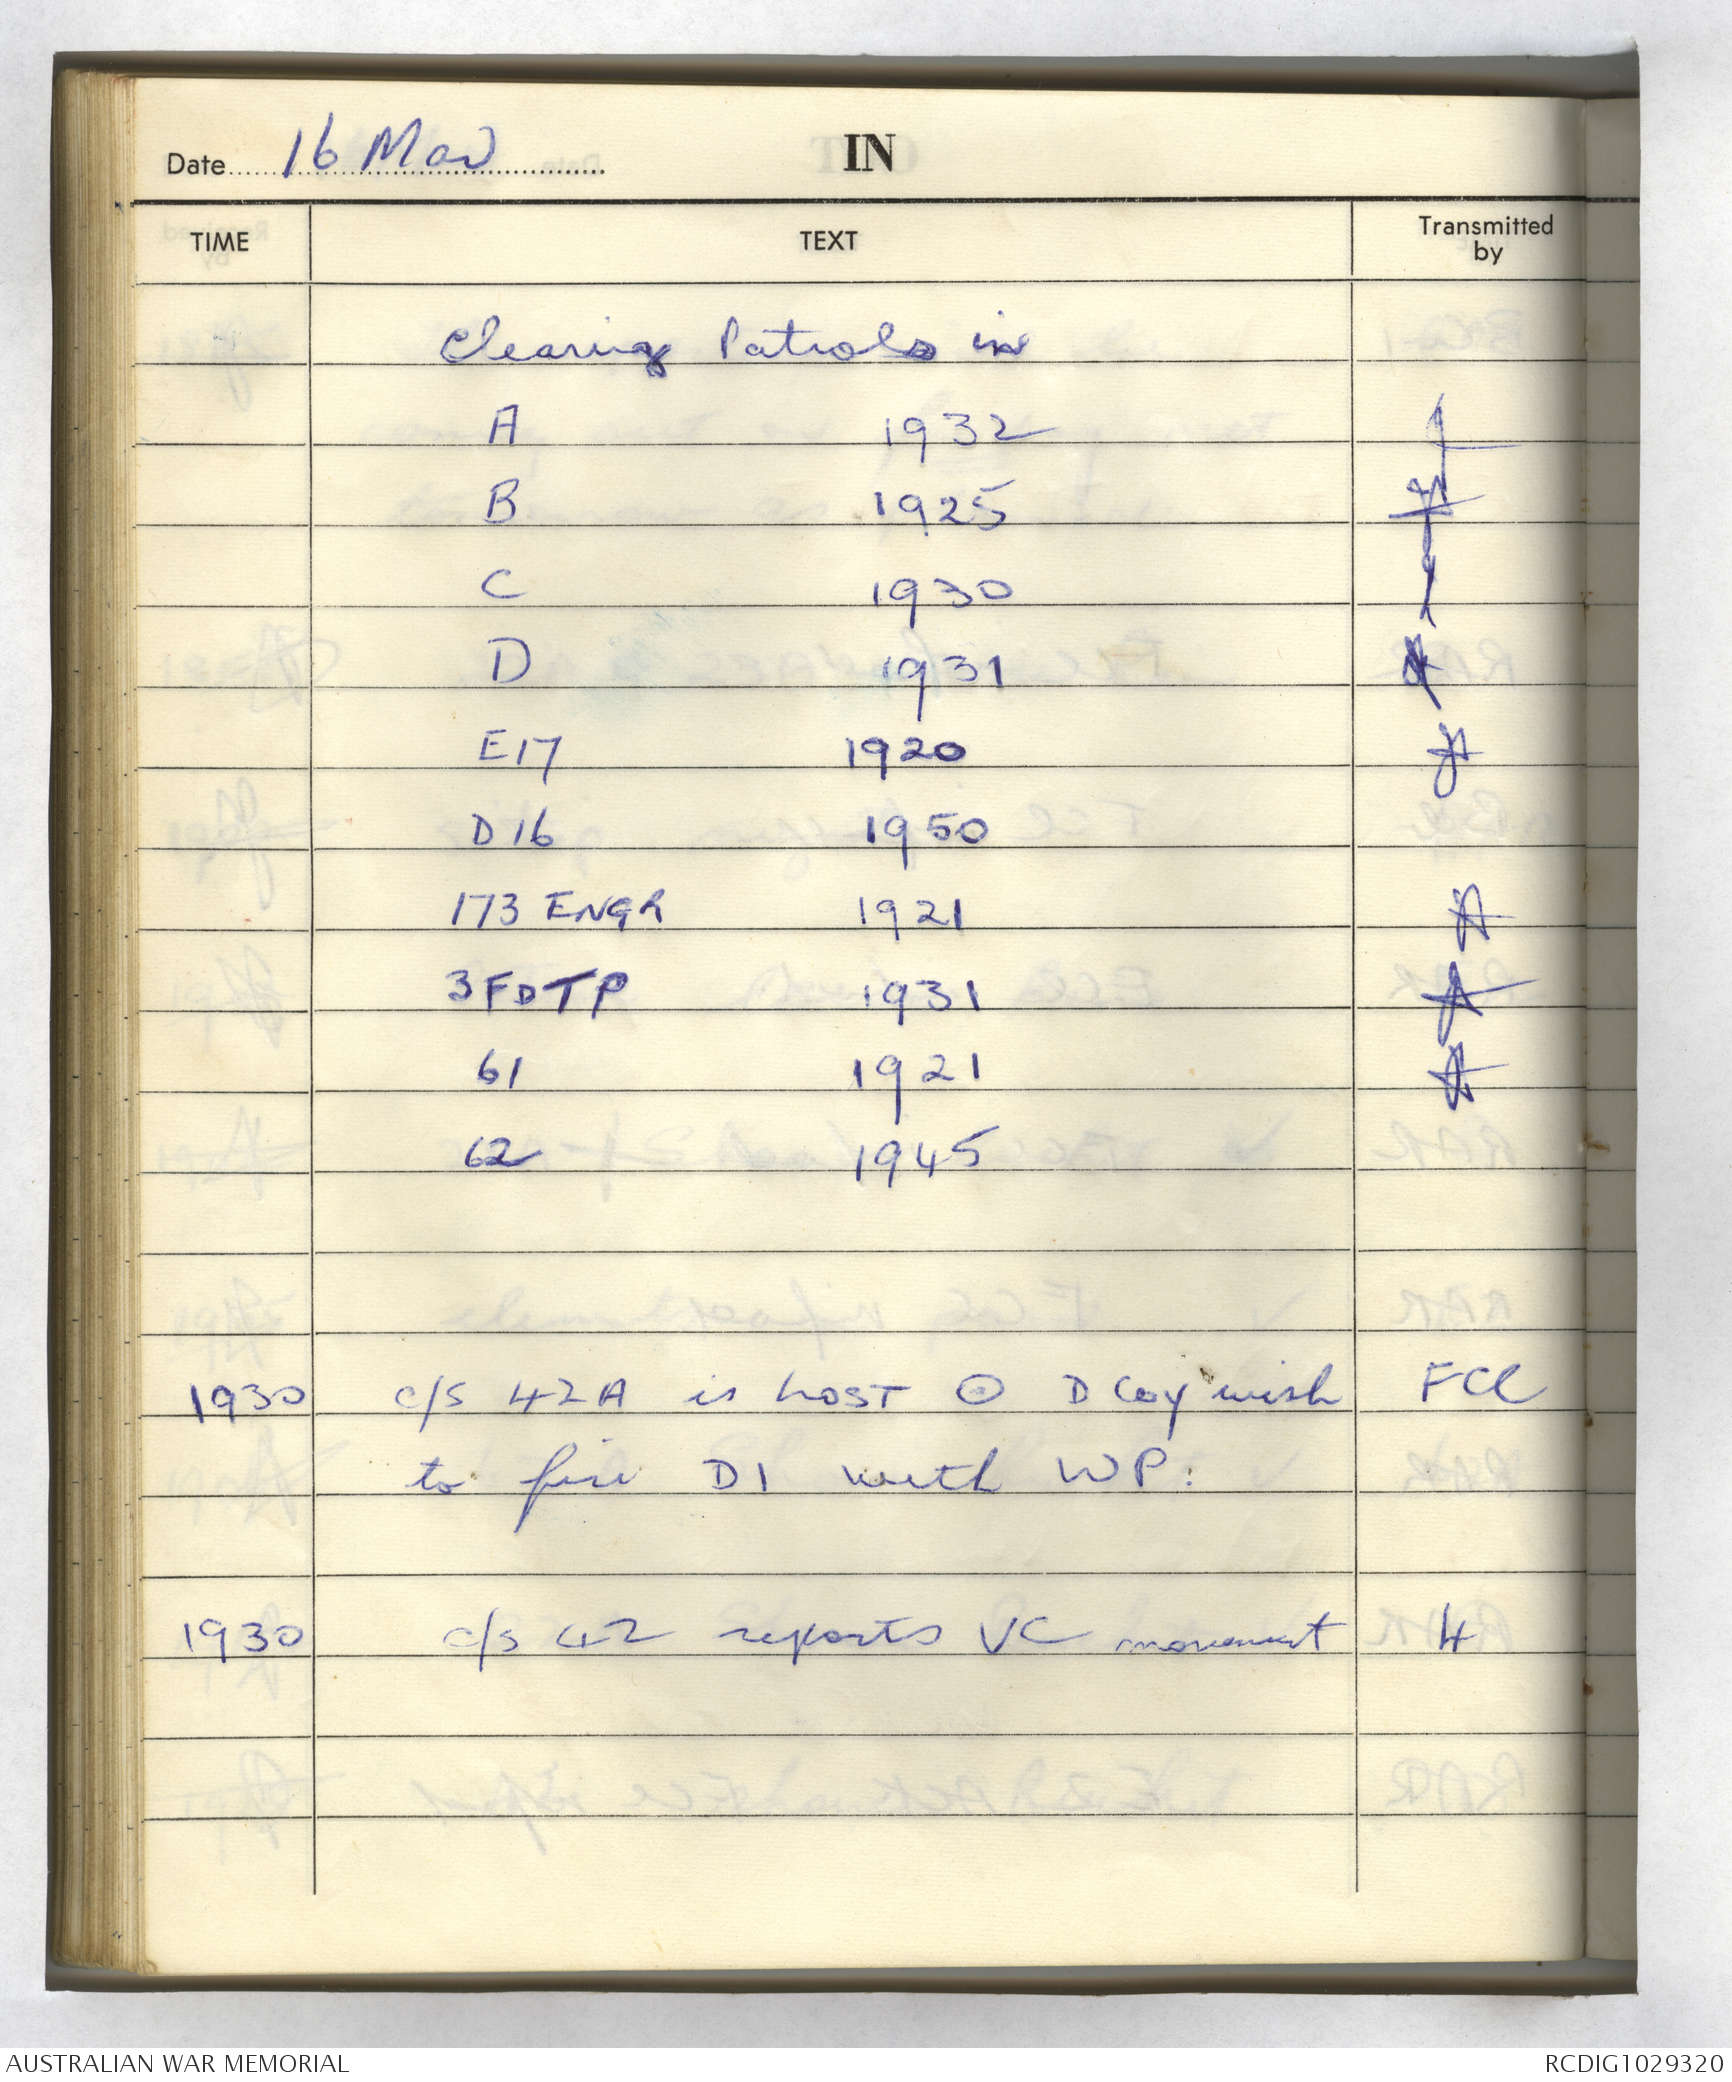 Date 16 Mar
IN
TIME TEXT Transmitted by
Clearing Patrols in
A 1932
B 1925
C 1930
D 1931
E17 1920
D16 1950
173 ENGR 1921
3 FD TP 1931
61 1921
62 1945
1930 c/s 42A is host D Coy wish FCC
to fire D1 with WP.
1930 c/s 42 reports VC movement 4
AUSTRALIAN WAR MEMORIAL RCDIG1029320